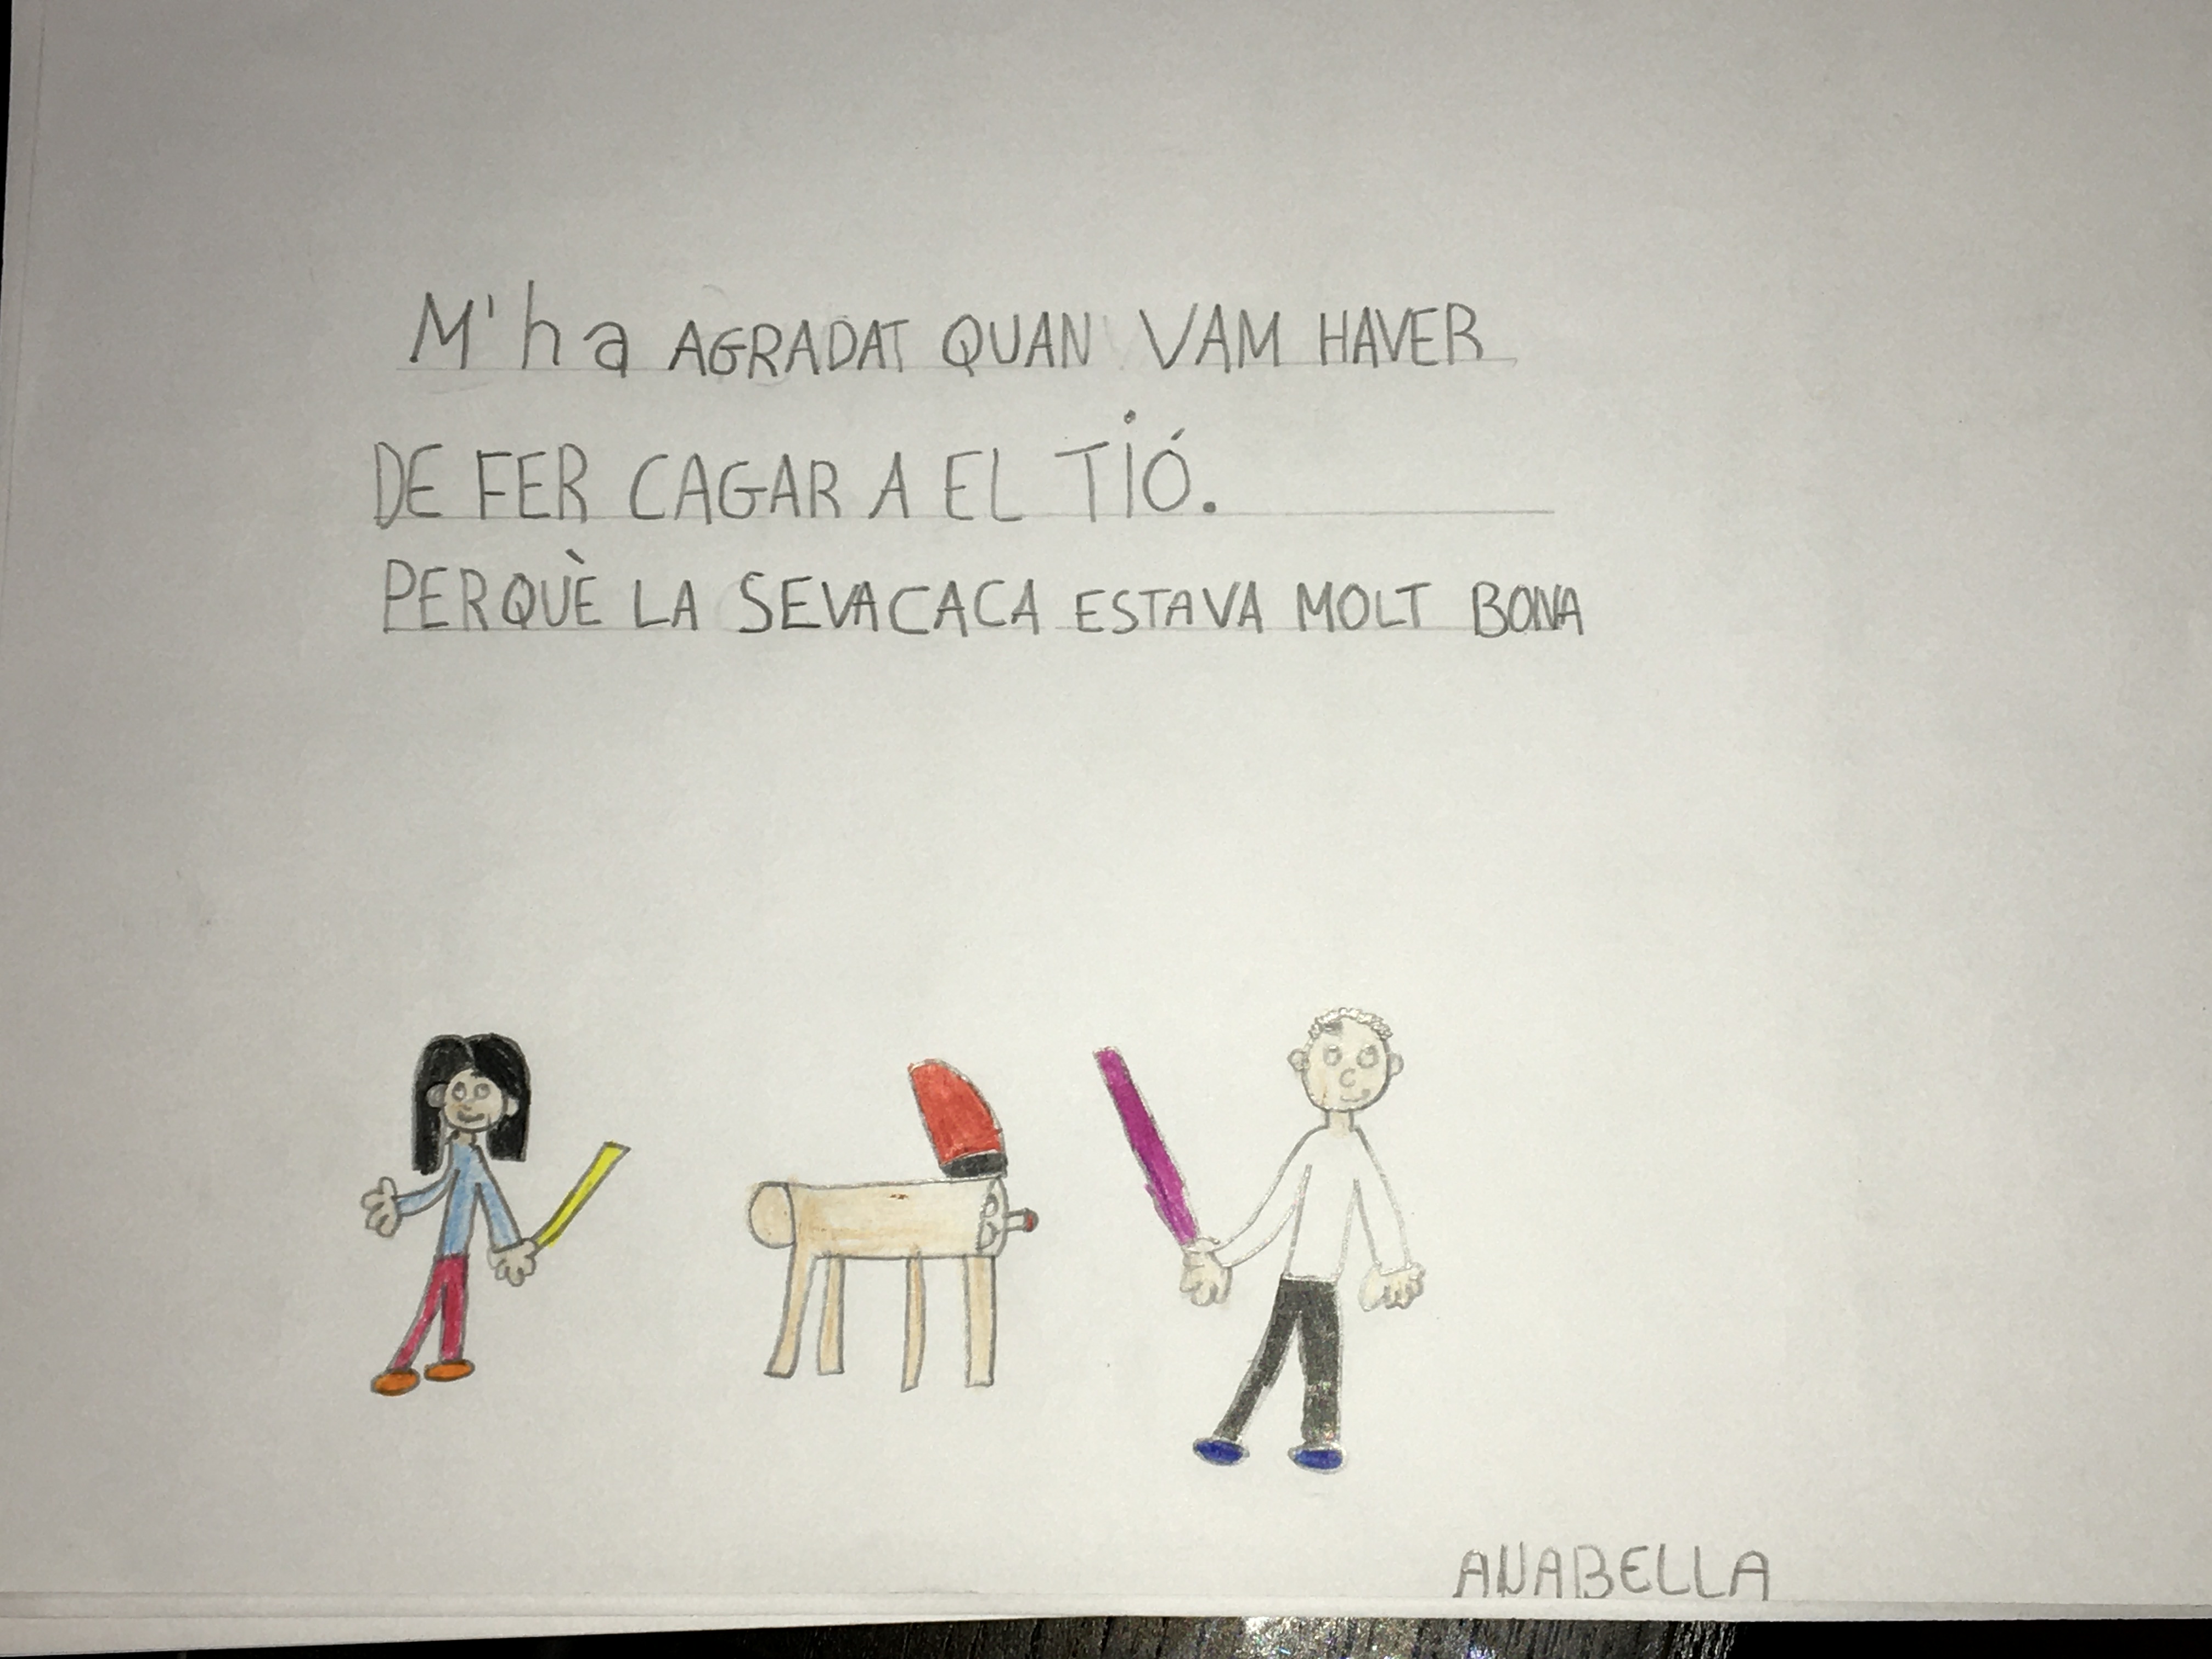 M'ha AGRADAT QUAN VAM HAVER
DE FER CAGAR A EL TIÓ.
PERQUÈ LA SEVA CACA ESTAVA MOLT BONA
ANABELLA